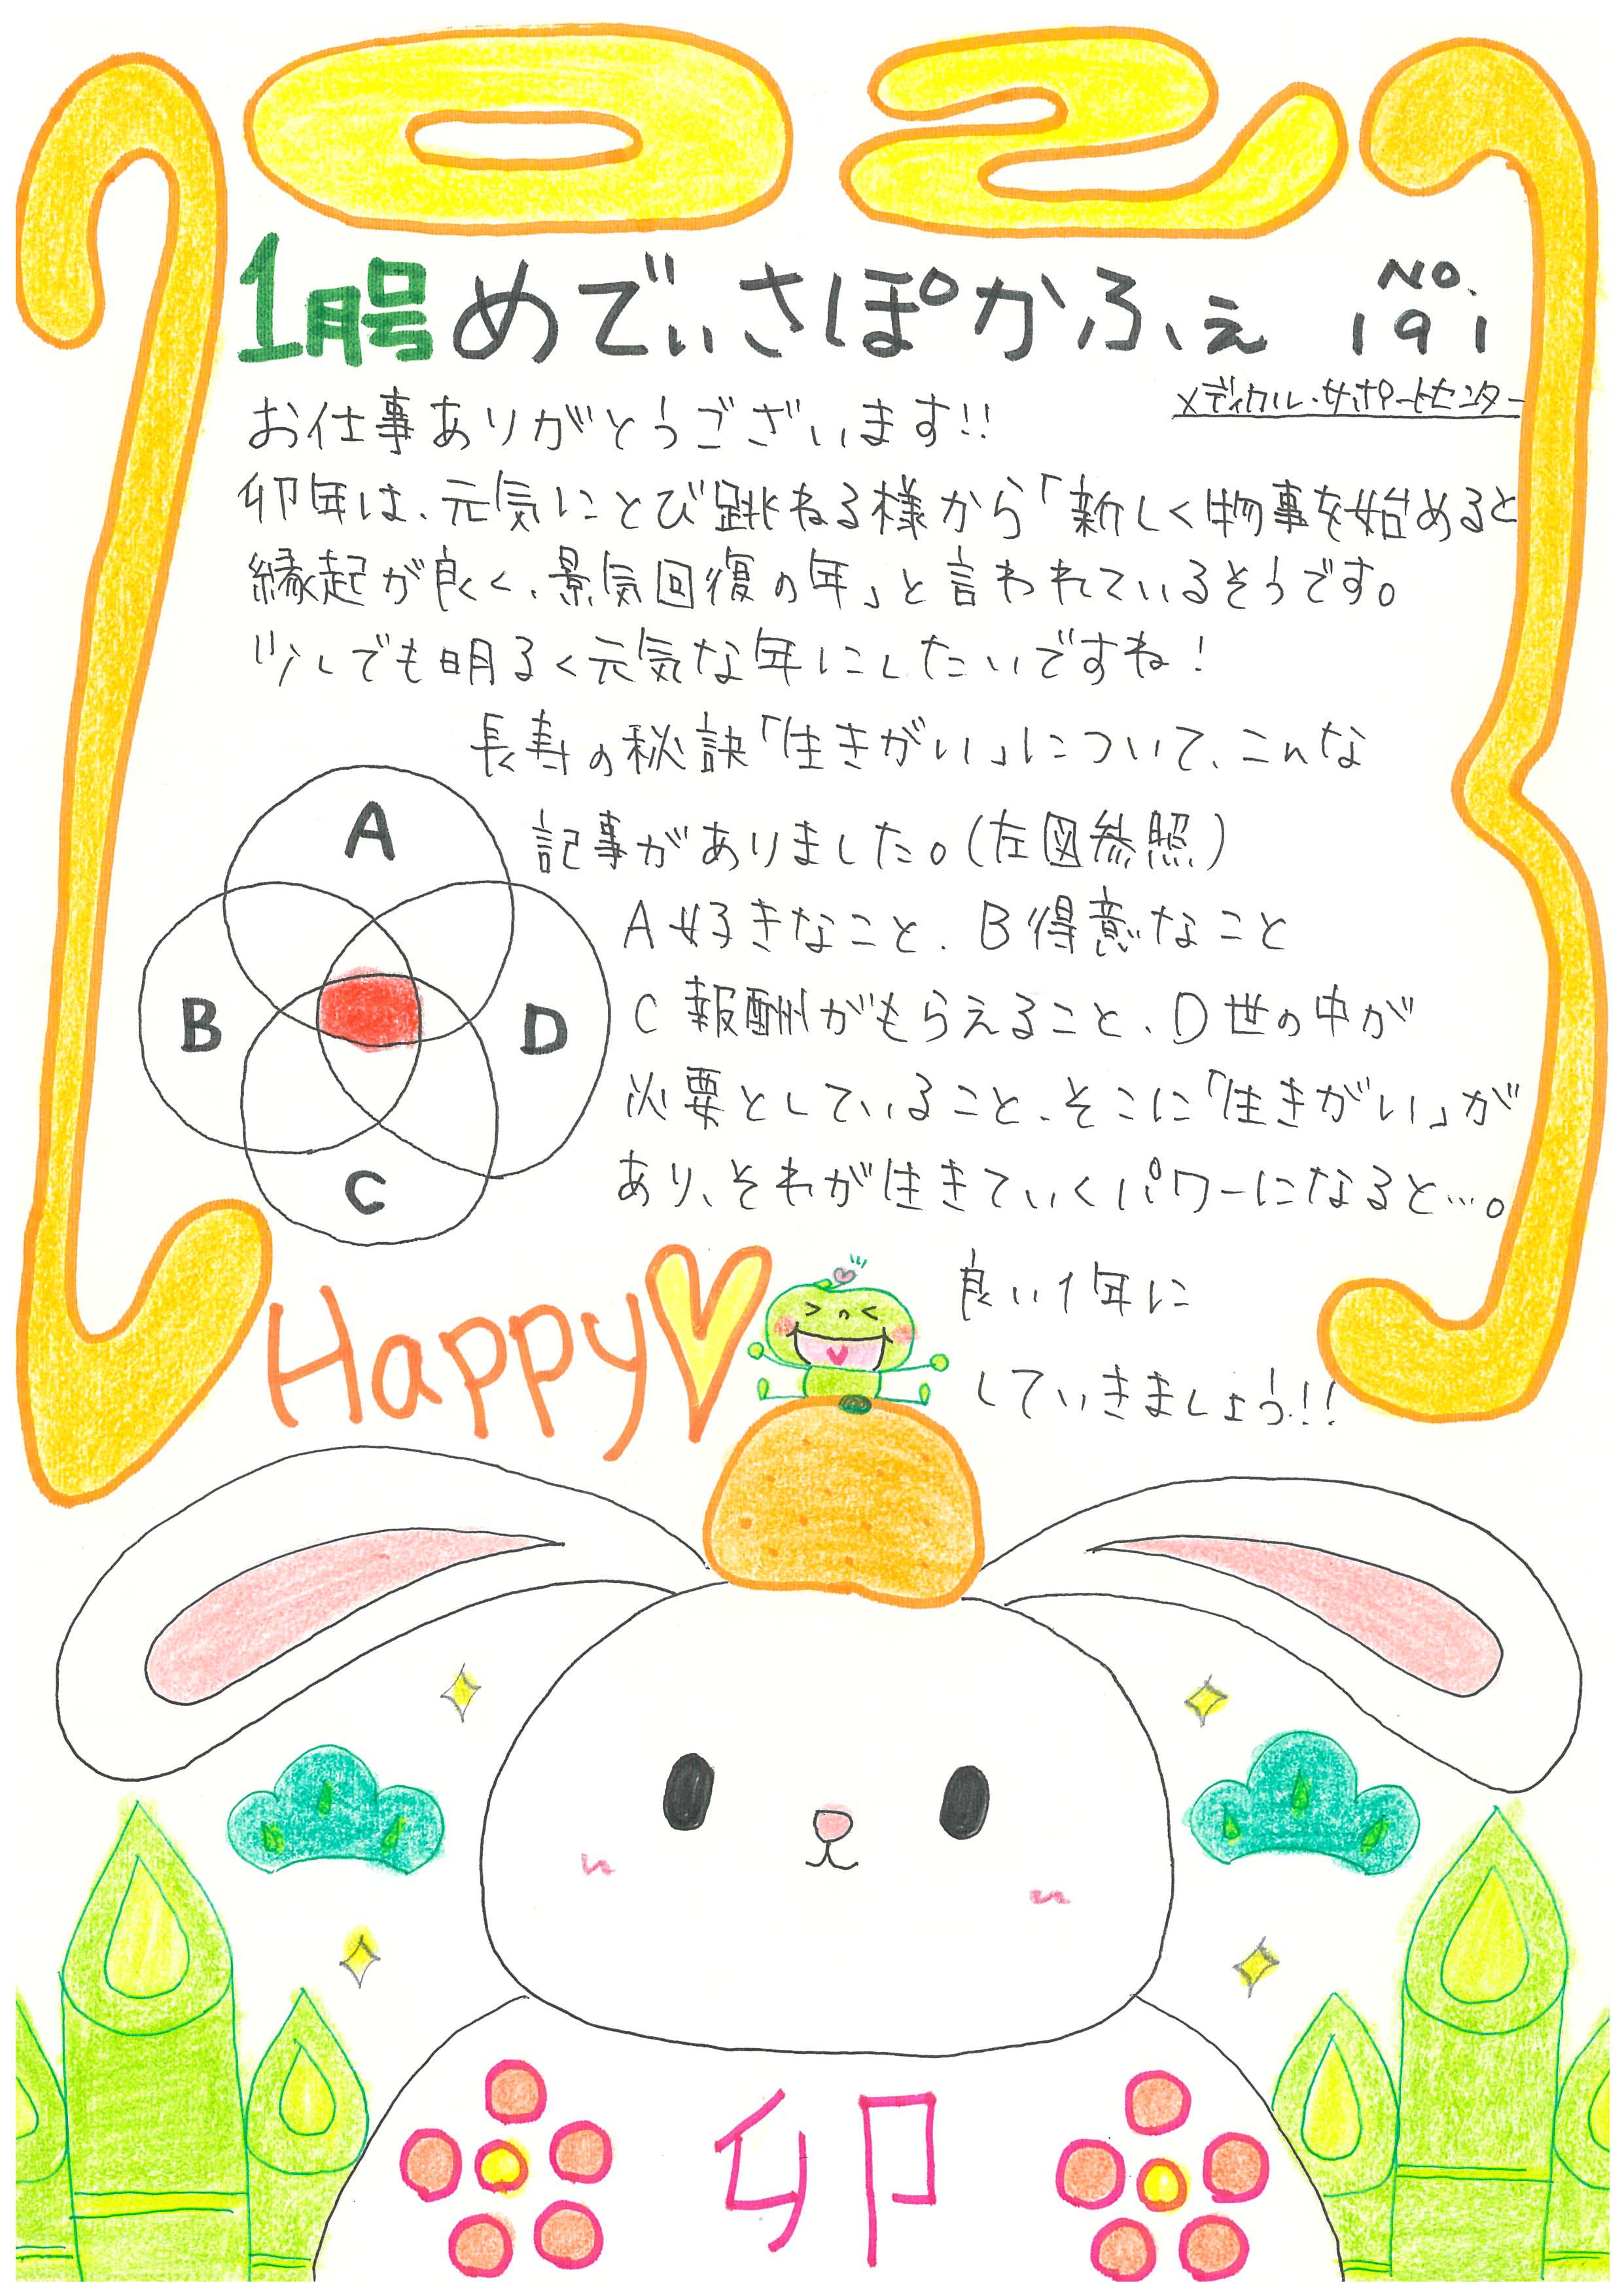 2023
1月号 めでぃさぽかふぇ NO.191
メディカル・サポートセンター
お仕事ありがとうございます!!
卯年は、元気にとび跳ねる様から「新しく物事を始めると
縁起が良く、景気回復の年」と言われているそうです。
少しでも明るく元気な年にしたいですね!
長寿の秘訣「生きがい」について、こんな
記事がありました。(左図参照)
A 好きなこと、B 得意なこと
C 報酬がもらえること、D 世の中が
必要としていること、そこに「生きがい」が
あり、それが生きていくパワーになると…。
A
B
D
C
良い1年に
していきましょう!!
Happy
卯